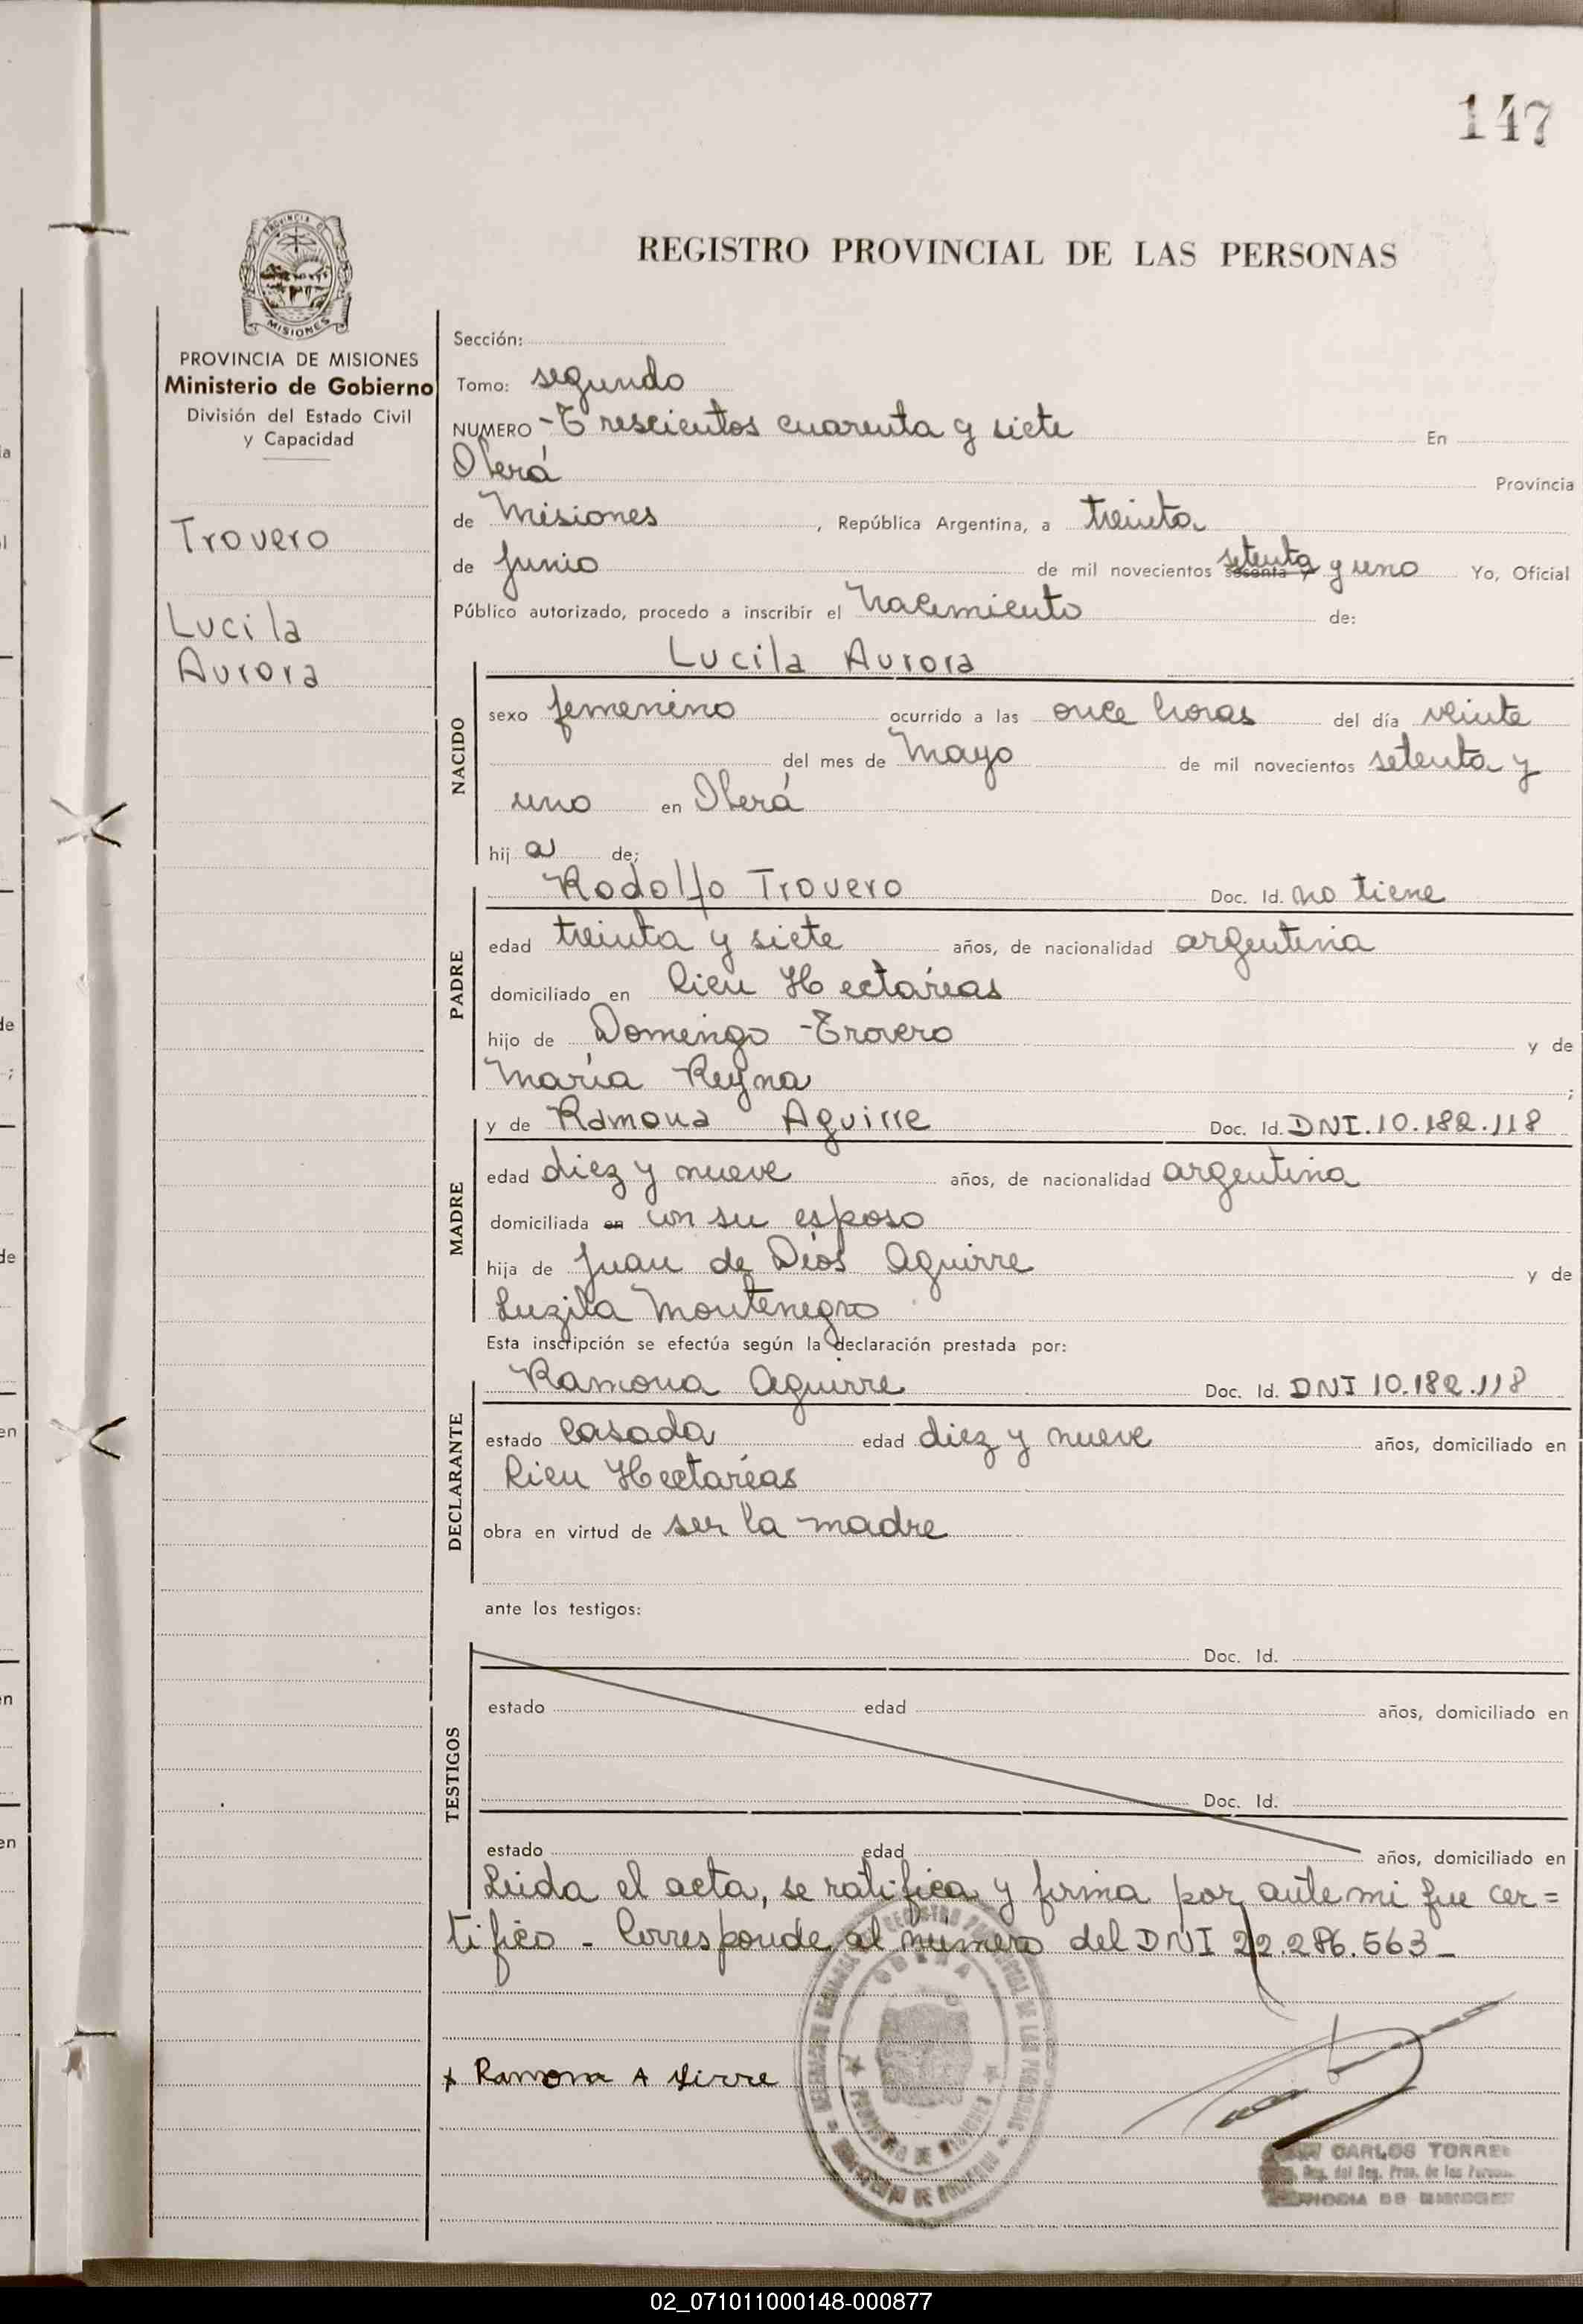 147
REGISTRO PROVINCIAL DE LAS PERSONAS
PROVINCIA DE MISIONES
Ministerio de Gobierno
División del Estado Civil
y Capacidad
Trovero
Lucila
Aurora
Sección:
Tomo: segundo
NUMERO Trescientos cuarenta y siete En
Oberá Provincia
de Misiones, República Argentina, a treinta
de Junio de mil novecientos sesenta y setenta y uno Yo, Oficial
Público autorizado, procedo a inscribir el Nacimiento de:
Lucila Aurora
NACIDO
sexo femenino ocurrido a las once horas del día veinte
del mes de Mayo de mil novecientos setenta y
uno en Oberá
hij a de:
PADRE
Rodolfo Trovero Doc. Id. no tiene
edad treinta y siete años, de nacionalidad argentina
domiciliado en Cien Hectáreas
hijo de Domingo Trovero y de
María Reyna ;
MADRE
y de Ramona Aguirre Doc. Id. DNI.10.182.118
edad diez y nueve años, de nacionalidad argentina
domiciliada en con su esposo
hija de Juan de Dios Aguirre y de
Luzila Montenegro
Esta inscripción se efectúa según la declaración prestada por:
DECLARANTE
Ramona Aguirre Doc. Id. DNI 10.182.118
estado casada edad diez y nueve años, domiciliado en
Cien Hectáreas
obra en virtud de ser la madre
ante los testigos:
TESTIGOS
Doc. Id.
estado edad años, domiciliado en
Doc. Id.
estado edad años, domiciliado en
Leida el acta, se ratifica y firma por ante mi fue cer=
tifico - Corresponde al número del DNI 22.286.563-
OBERA
PROVINCIA DE MISIONES
x Ramona A
CARLOS TORRES
02_071011000148-000877